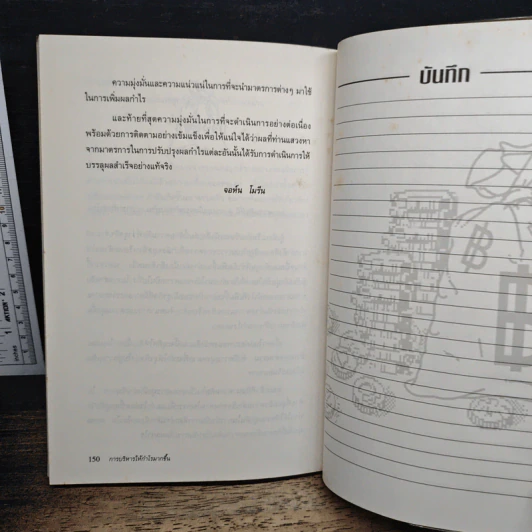 ความมุ่งมั่นและความแน่วแน่ในการที่จะนำมาตรการต่างๆ มาใช้
ในการเพิ่มผลกำไร
และท้ายที่สุดความมุ่งมั่นในการที่จะดำเนินการอย่างต่อเนื่อง
พร้อมด้วยการติดตามอย่างเข้มแข็งเพื่อให้แน่ใจได้ว่าผลที่ท่านแสวงหา
จากมาตรการในการปรับปรุงผลกำไรแต่ละอันนั้นได้รับการดำเนินการให้
บรรลุผลสำเร็จอย่างแท้จริง
จอห์น โมรีน
150 การบริหารให้กำไรมากขึ้น
บันทึก
฿